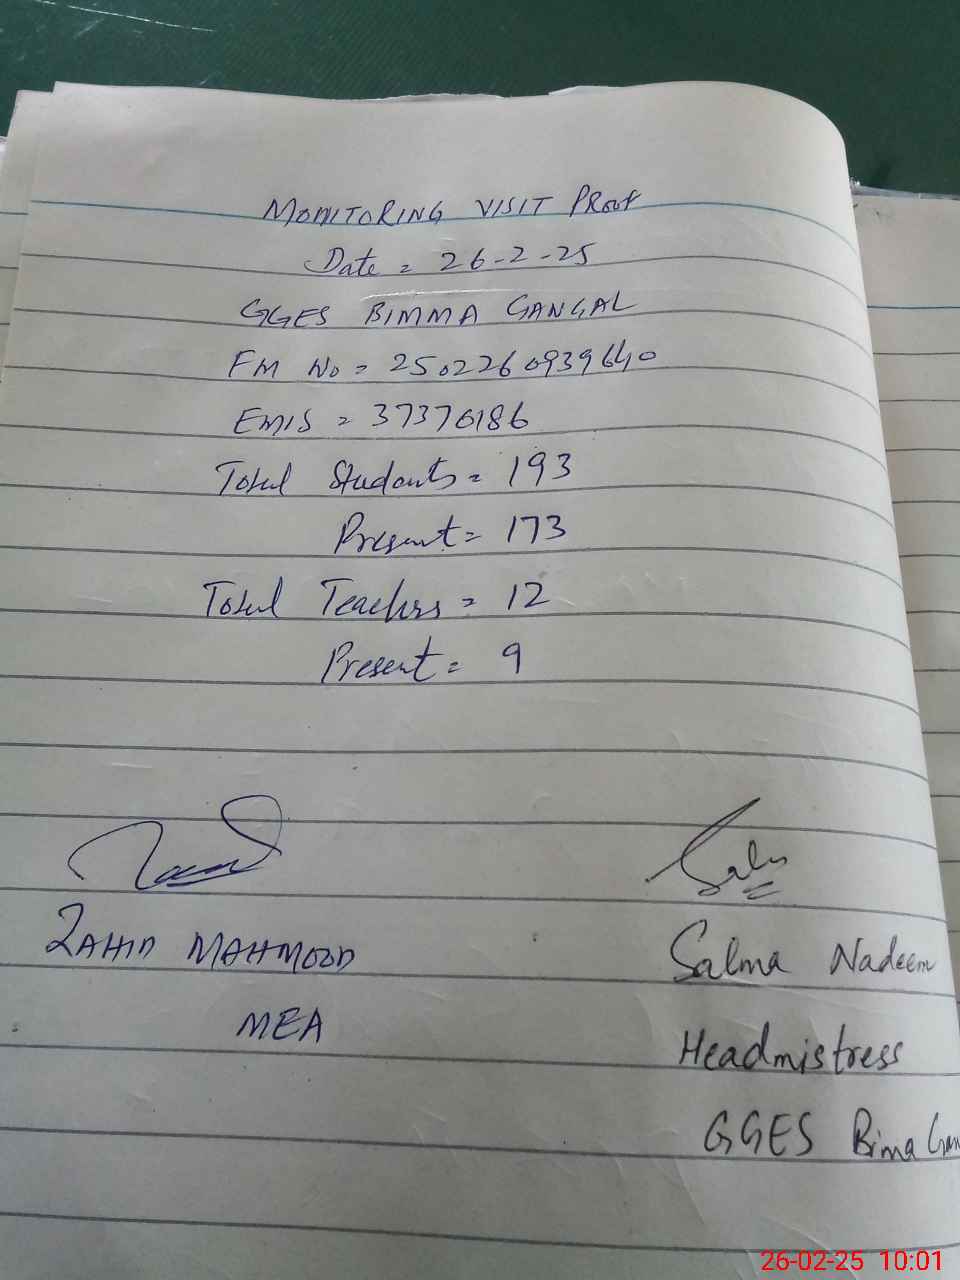 MONITORING VISIT PROOF
Date = 26-2-25
GGES BIMMA GANGAL
FM No = 2502260939640
EMIS = 37370186
Total Students = 193
Present = 173
Total Teachers = 12
Present = 9
ZAHID MAHMOOD
Salma Nadeem
MEA
Headmistress
GGES Bima Gan
26-02-25 10:01